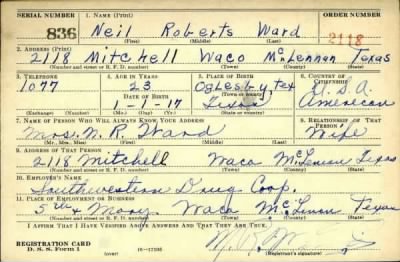 SERIAL NUMBER 1. NAME (Print) ORDER NUMBER
836 Neil Roberts Ward 2118
(First) (Middle) (Last)
2. ADDRESS (Print)
2118 Mitchell Waco McLennan Texas
(Number and street or R. F. D. number) (Town) (County) (State)
3. TELEPHONE 4. AGE IN YEARS 5. PLACE OF BIRTH 6. COUNTRY OF CITIZENSHIP
1077 23 Oglesby, Tex U.S.A.
DATE OF BIRTH
1-1-17 Texas American
(Exchange) (Number) (Mo.) (Day) (Yr.) (State or country)
7. NAME OF PERSON WHO WILL ALWAYS KNOW YOUR ADDRESS 8. RELATIONSHIP OF THAT PERSON
Mrs. N. R. Ward Wife
(Mr., Mrs., Miss) (First) (Middle) (Last)
9. ADDRESS OF THAT PERSON
2118 Mitchell Waco McLennan Texas
(Number and street or R. F. D. number) (Town) (County) (State)
10. EMPLOYER'S NAME
Southwestern Drug Corp.
11. PLACE OF EMPLOYMENT OR BUSINESS
5th & Mary Waco McLennan Texas
(Number and street or R. F. D. number) (Town) (County) (State)
I AFFIRM THAT I HAVE VERIFIED ABOVE ANSWERS AND THAT THEY ARE TRUE.
REGISTRATION CARD
D. S. S. Form 1 (over) (Registrant's signature)